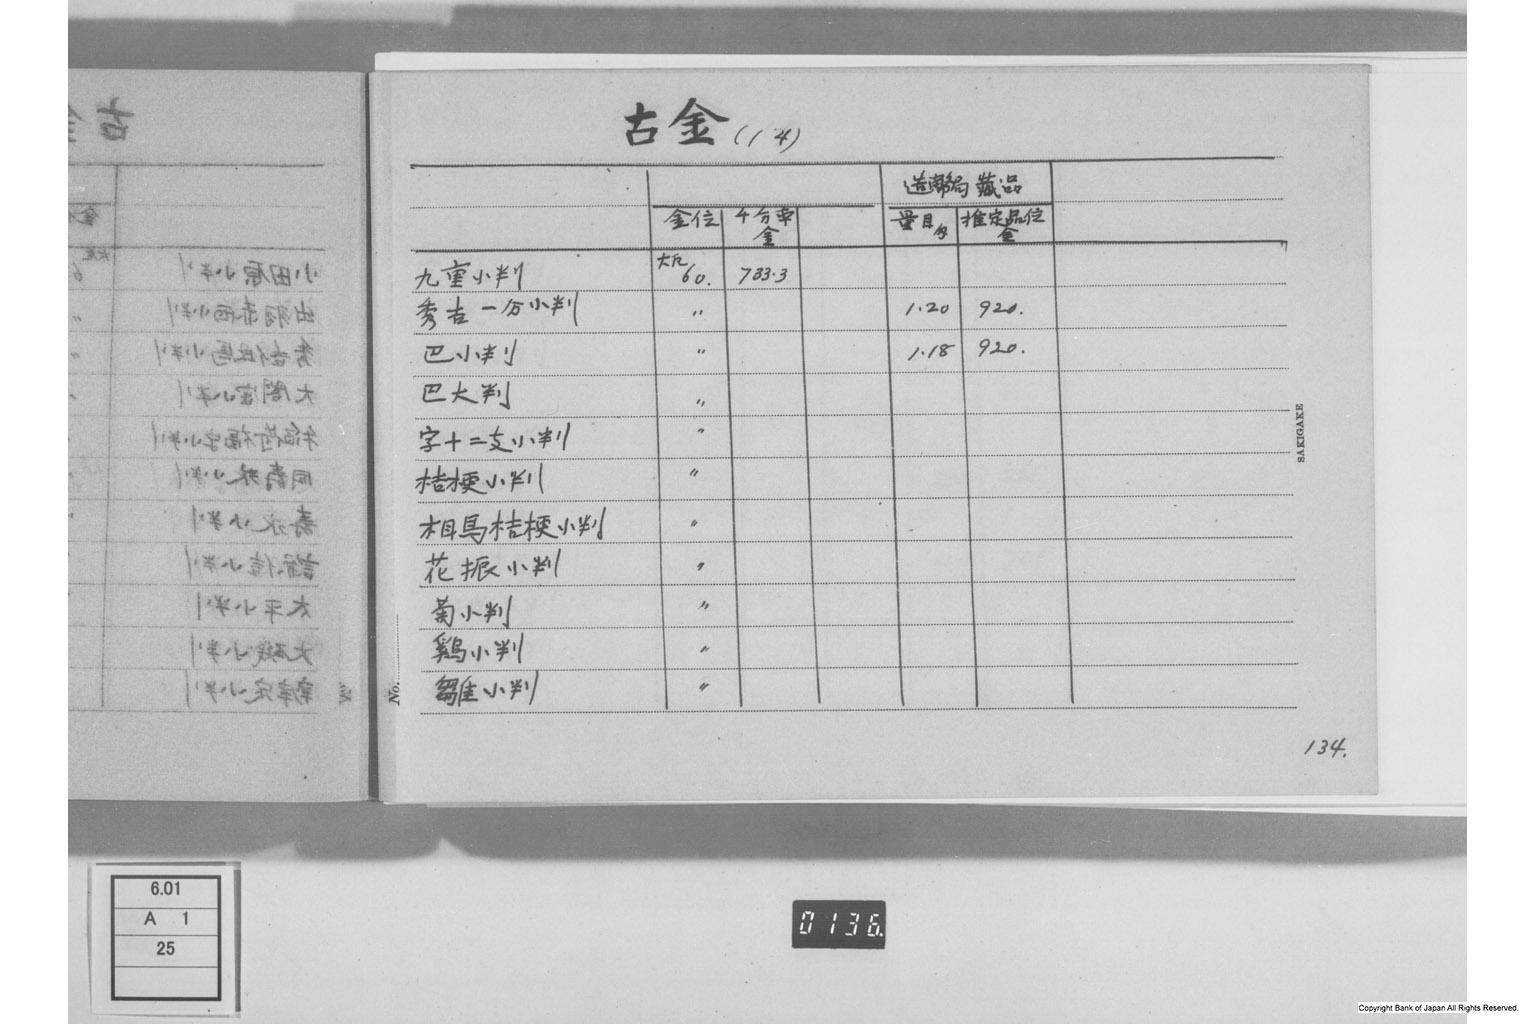 古金(14)
造幣局蔵品
金位 千分率金 量目匁 推定品位金
九重小判 大凡60. 733.3
秀吉一分小判 〃 1.20 920.
巴小判 〃 1.18 920.
巴大判 〃
字十二支小判 〃
桔梗小判 〃
相馬桔梗小判 〃
花振小判 〃
菊小判 〃
鶏小判 〃
雛小判 〃
No.
SAKIGAKE
134.
6.01
A 1
25
0136.
Copyright Bank of Japan All Rights Reserved.